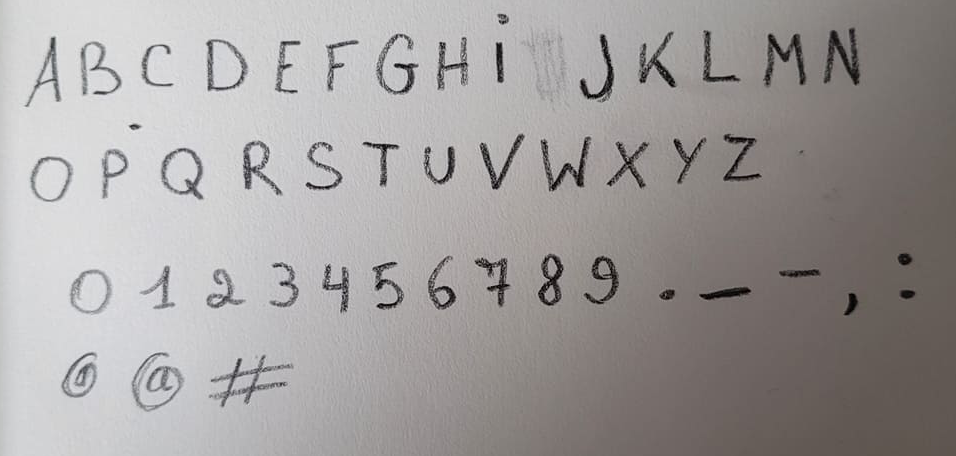 A B C D E F G H i J K L M N
O P Q R S T U V W X Y Z
0 1 2 3 4 5 6 7 8 9 . _ - , :
@ @ #